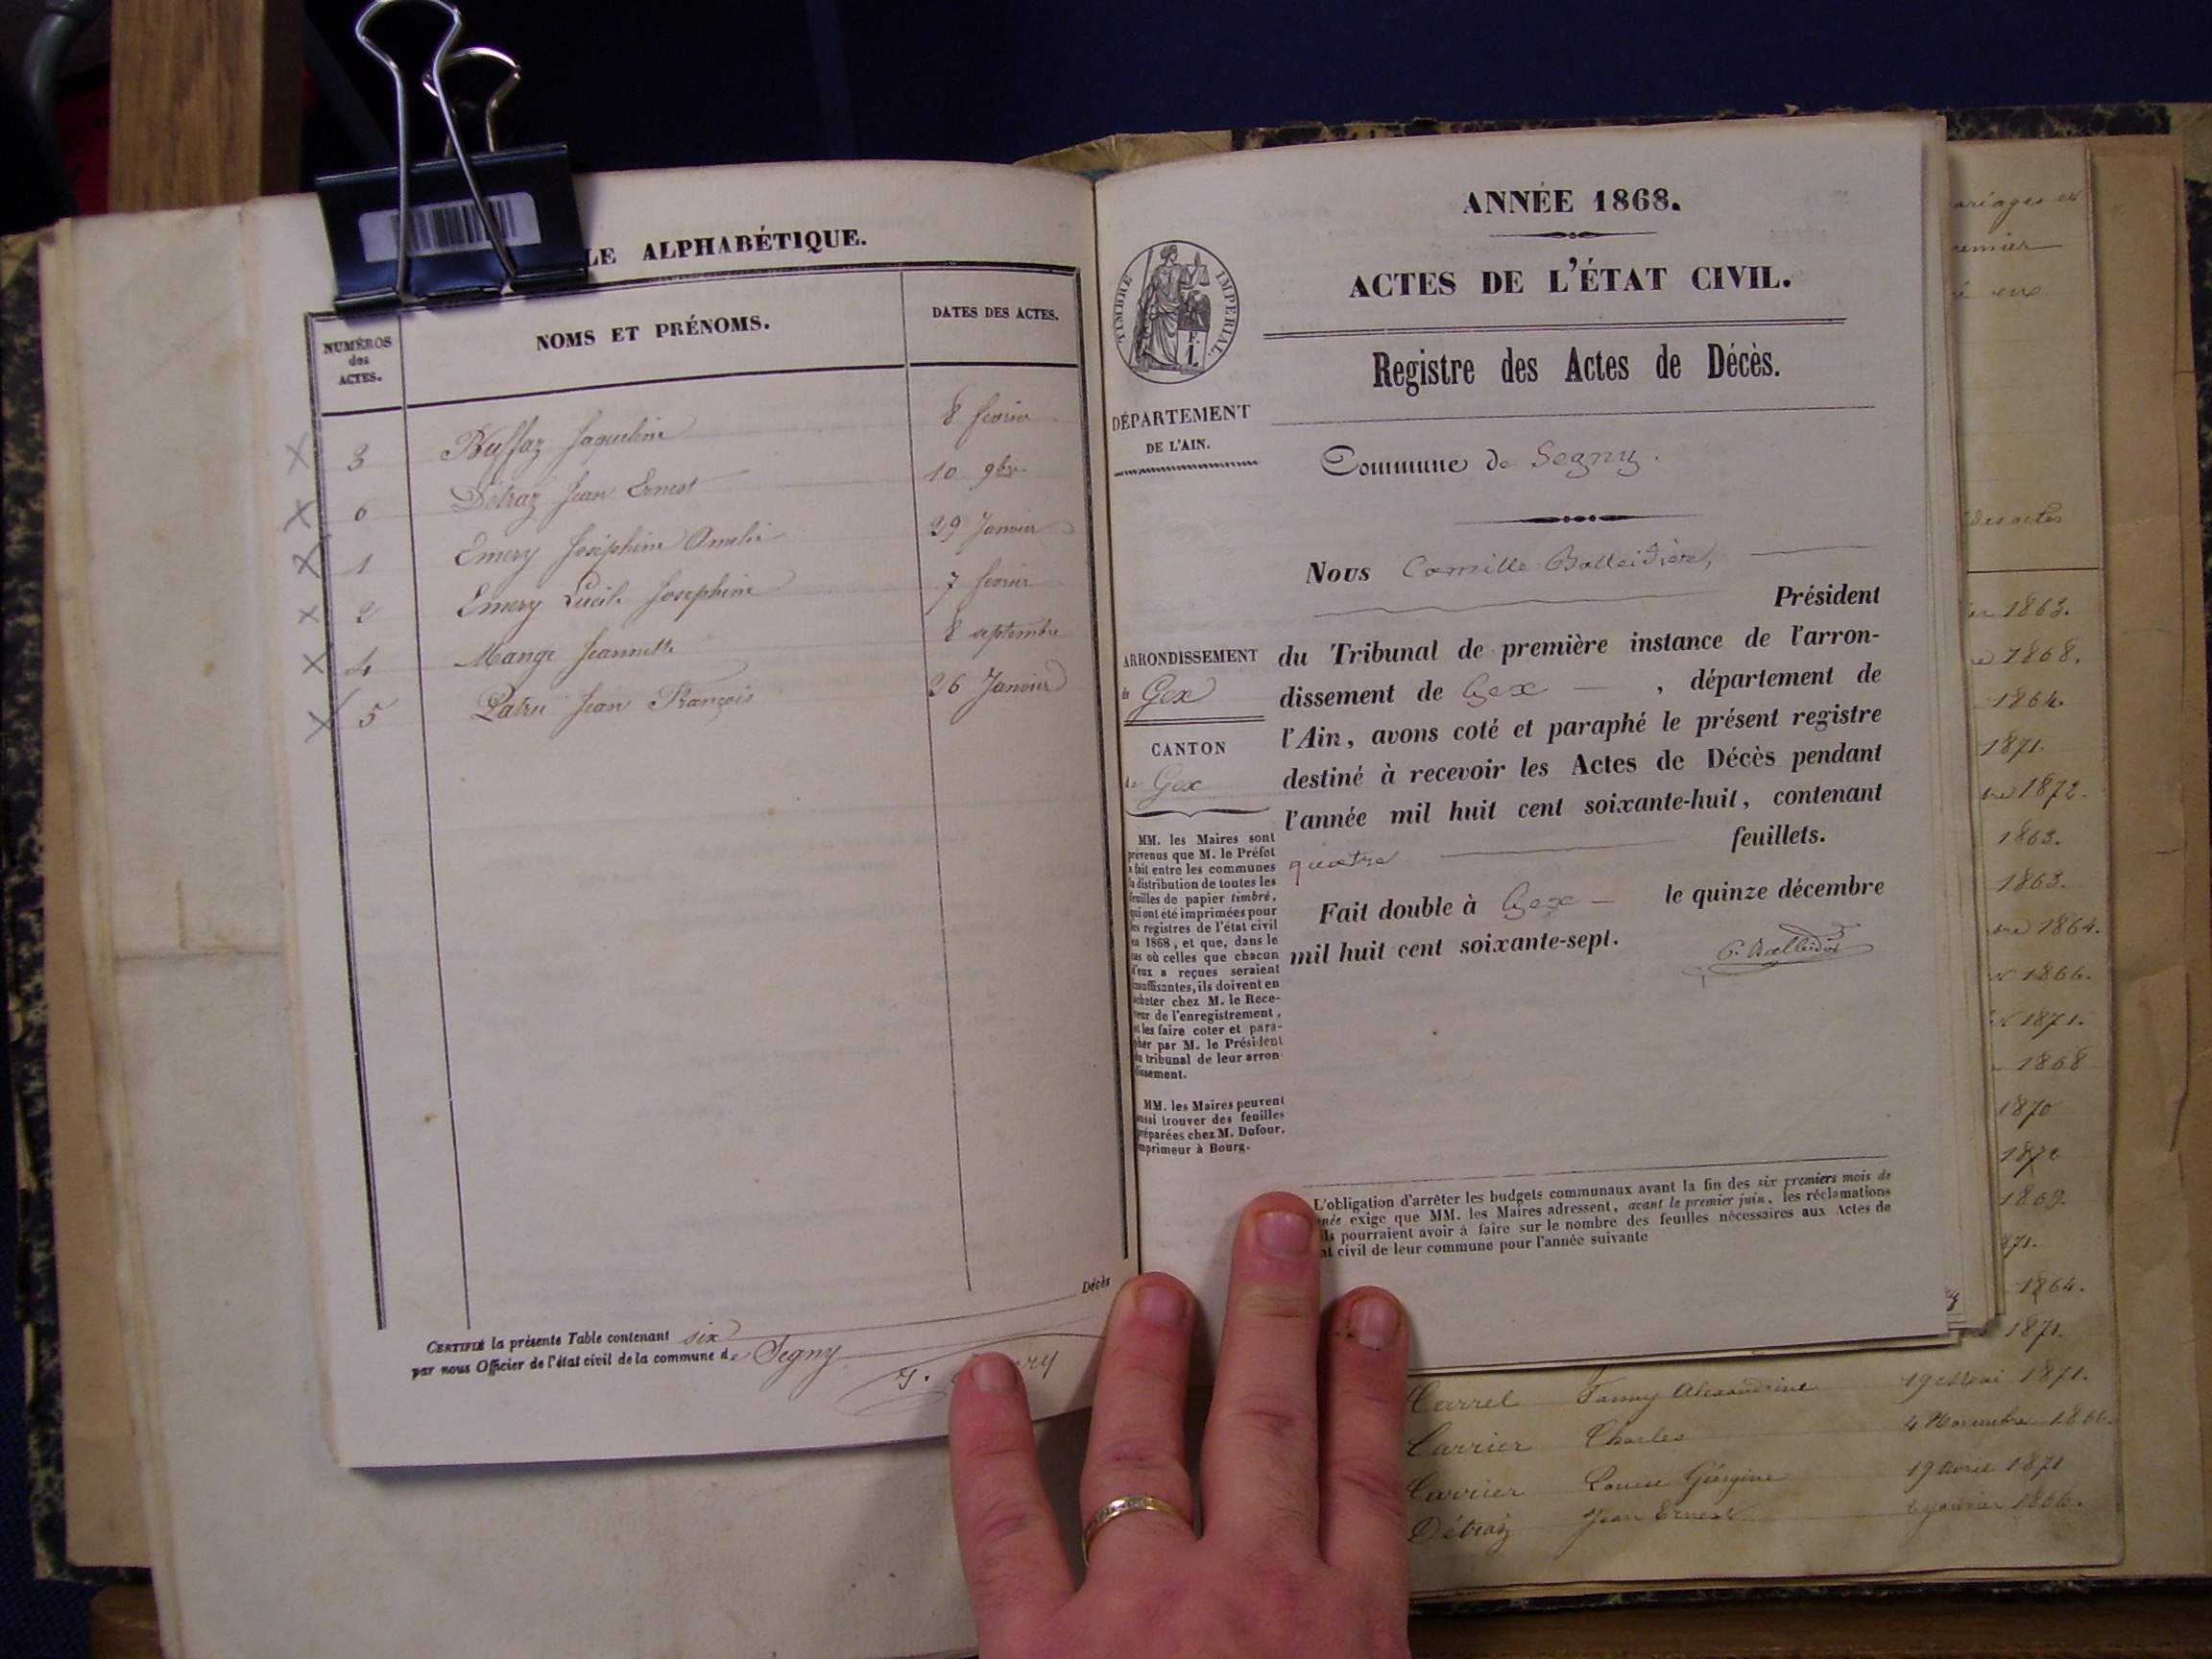 LE ALPHABÉTIQUE.
NUMÉROS
des
ACTES.
NOMS ET PRÉNOMS.
DATES DES ACTES.
3 Buffaz Jaqueline 8 fevrier
6 Détraz Jean Ernest 10 9bre
1 Emery Joséphine Amelie 29 Janvier
2 Emery Lucile Josephine 7 fevrier
4 Mange Jeannette 8 septembre
5 Jean François 26 Janvier
Décès
CERTIFIÉ la présente Table contenant six
par nous Officier de l'état civil de la commune de Segny
ANNÉE 1868.
ACTES DE L'ÉTAT CIVIL.
Registre des Actes de Décès.
TIMBRE IMPÉRIAL.
DÉPARTEMENT
DE L'AIN.
Commune de Segny.
Nous Camille Balleidier,
Président
ARRONDISSEMENT
de Gex
CANTON
de Gex
du Tribunal de première instance de l'arron-
dissement de Gex, département de
l'Ain, avons coté et paraphé le présent registre
destiné à recevoir les Actes de Décès pendant
l'année mil huit cent soixante-huit, contenant
quatre feuillets.
Fait double à Gex le quinze décembre
mil huit cent soixante-sept.
C. Balleidier
MM. les Maires sont
prévenus que M. le Préfet
a fait entre les communes
la distribution de toutes les
feuilles de papier timbré,
qui ont été imprimées pour
les registres de l'état civil
en 1868, et que, dans le
cas où celles que chacun
d'eux a reçues seraient
insuffisantes, ils doivent en
acheter chez M. le Rece-
veur de l'enregistrement,
et les faire coter et para-
pher par M. le Président
du tribunal de leur arron-
dissement.
MM. les Maires peuvent
aussi trouver des feuilles
préparées chez M. Dufour,
imprimeur à Bourg.
L'obligation d'arrêter les budgets communaux avant la fin des six premiers mois de
née exige que MM. les Maires adressent, avant le premier juin, les réclamations
ls pourraient avoir à faire sur le nombre des feuilles nécessaires aux Actes de
at civil de leur commune pour l'année suivante
ariages et
remier
des actes
1863.
1868.
1864.
1871.
1872.
1863.
1863.
bre 1864.
1866.
1871.
1868
1870
1872
1869.
871.
1864.
1871.
Carrel Fanny Alexandrine 19 Mai 1871.
Carrier Charles 4 Novembre 1866.
Carrier Louise Géorgine 19 Avril 1871
Détraz Jean Ernest 6 janvier 1866.